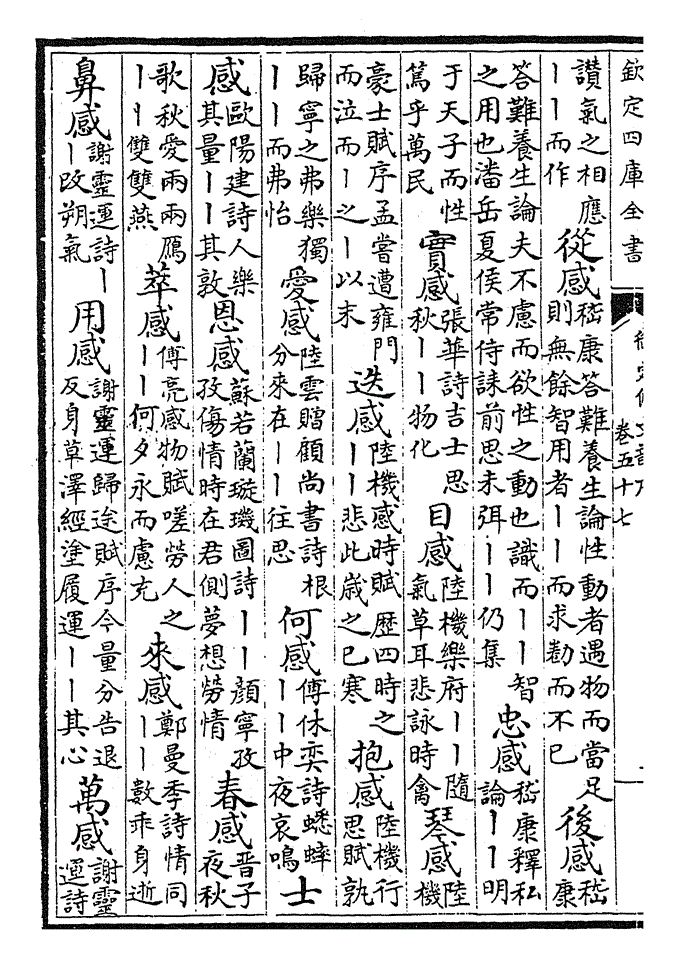 欽定四庫全書
卷五十七
讃氣之相應丨丨而作 從感 嵇康答難養生論性動者遇物而當足則無餘智用者丨丨而求勌而不已 後感 嵇康
答難養生論夫不慮而欲性之動也識而丨丨智之用也潘岳夏侯常侍誄前思未弭丨丨仍集 忠感 嵇康釋私論丨丨明
于天子而性篤乎萬民 實感 張華詩吉士思秋丨丨物化 目感 陸機樂府丨丨隨氣草耳悲詠時禽 琴感 陸機
豪士賦序孟嘗遭雍門而泣而丨之丨以末 迭感 陸機感時賦歴四時之丨丨悲此歲之已寒 抱感 陸機行思賦孰
歸寧之弗樂獨丨丨而弗怡 愛感 陸雲贈顧尚書詩根分來在丨丨往思 何感 傅休奕詩蟋蟀丨丨中夜哀鳴 士
感 歐陽建詩人樂其量丨丨其敦 恩感 蘇若蘭璇璣圖詩丨丨顔寧孜孜傷情時在君側夢想勞情 春感 晉子夜秋
歌秋愛兩兩鴈丨丨雙雙燕 萃感 傅亮感物賦嗟勞人之丨丨何夕永而慮充 來感 鄭曼季詩情同丨丨數乖身逝
鼻感 謝靈運詩丨丨改朔氣 用感 謝靈運歸途賦序今量分告退反身草澤經塗履運丨丨其心 萬感 謝靈運詩